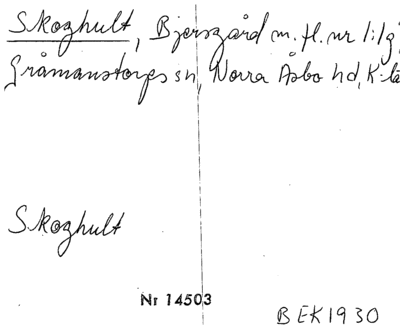 Skoghult, Bjersgård m.fl. nr 1:1g
Gråmanstorps sn, Norra Åsbo hd, K-lä
Skoghult
Nr 14503
BEK1930